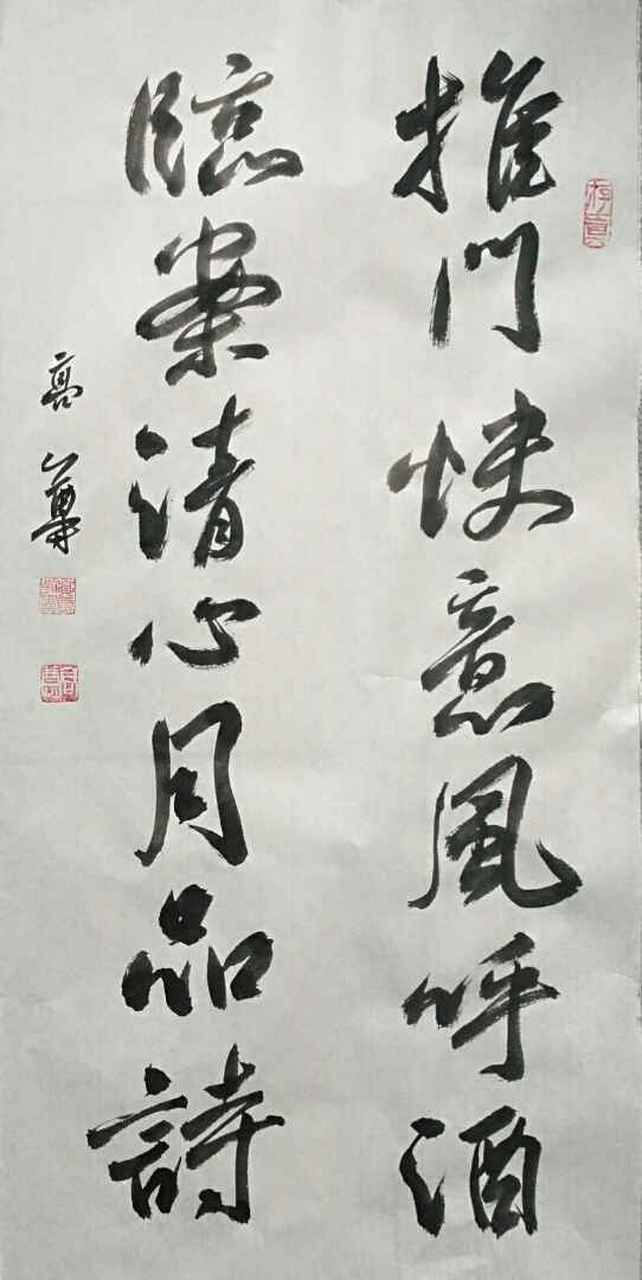 推門快意風呼酒
臨案清心月品詩
亮